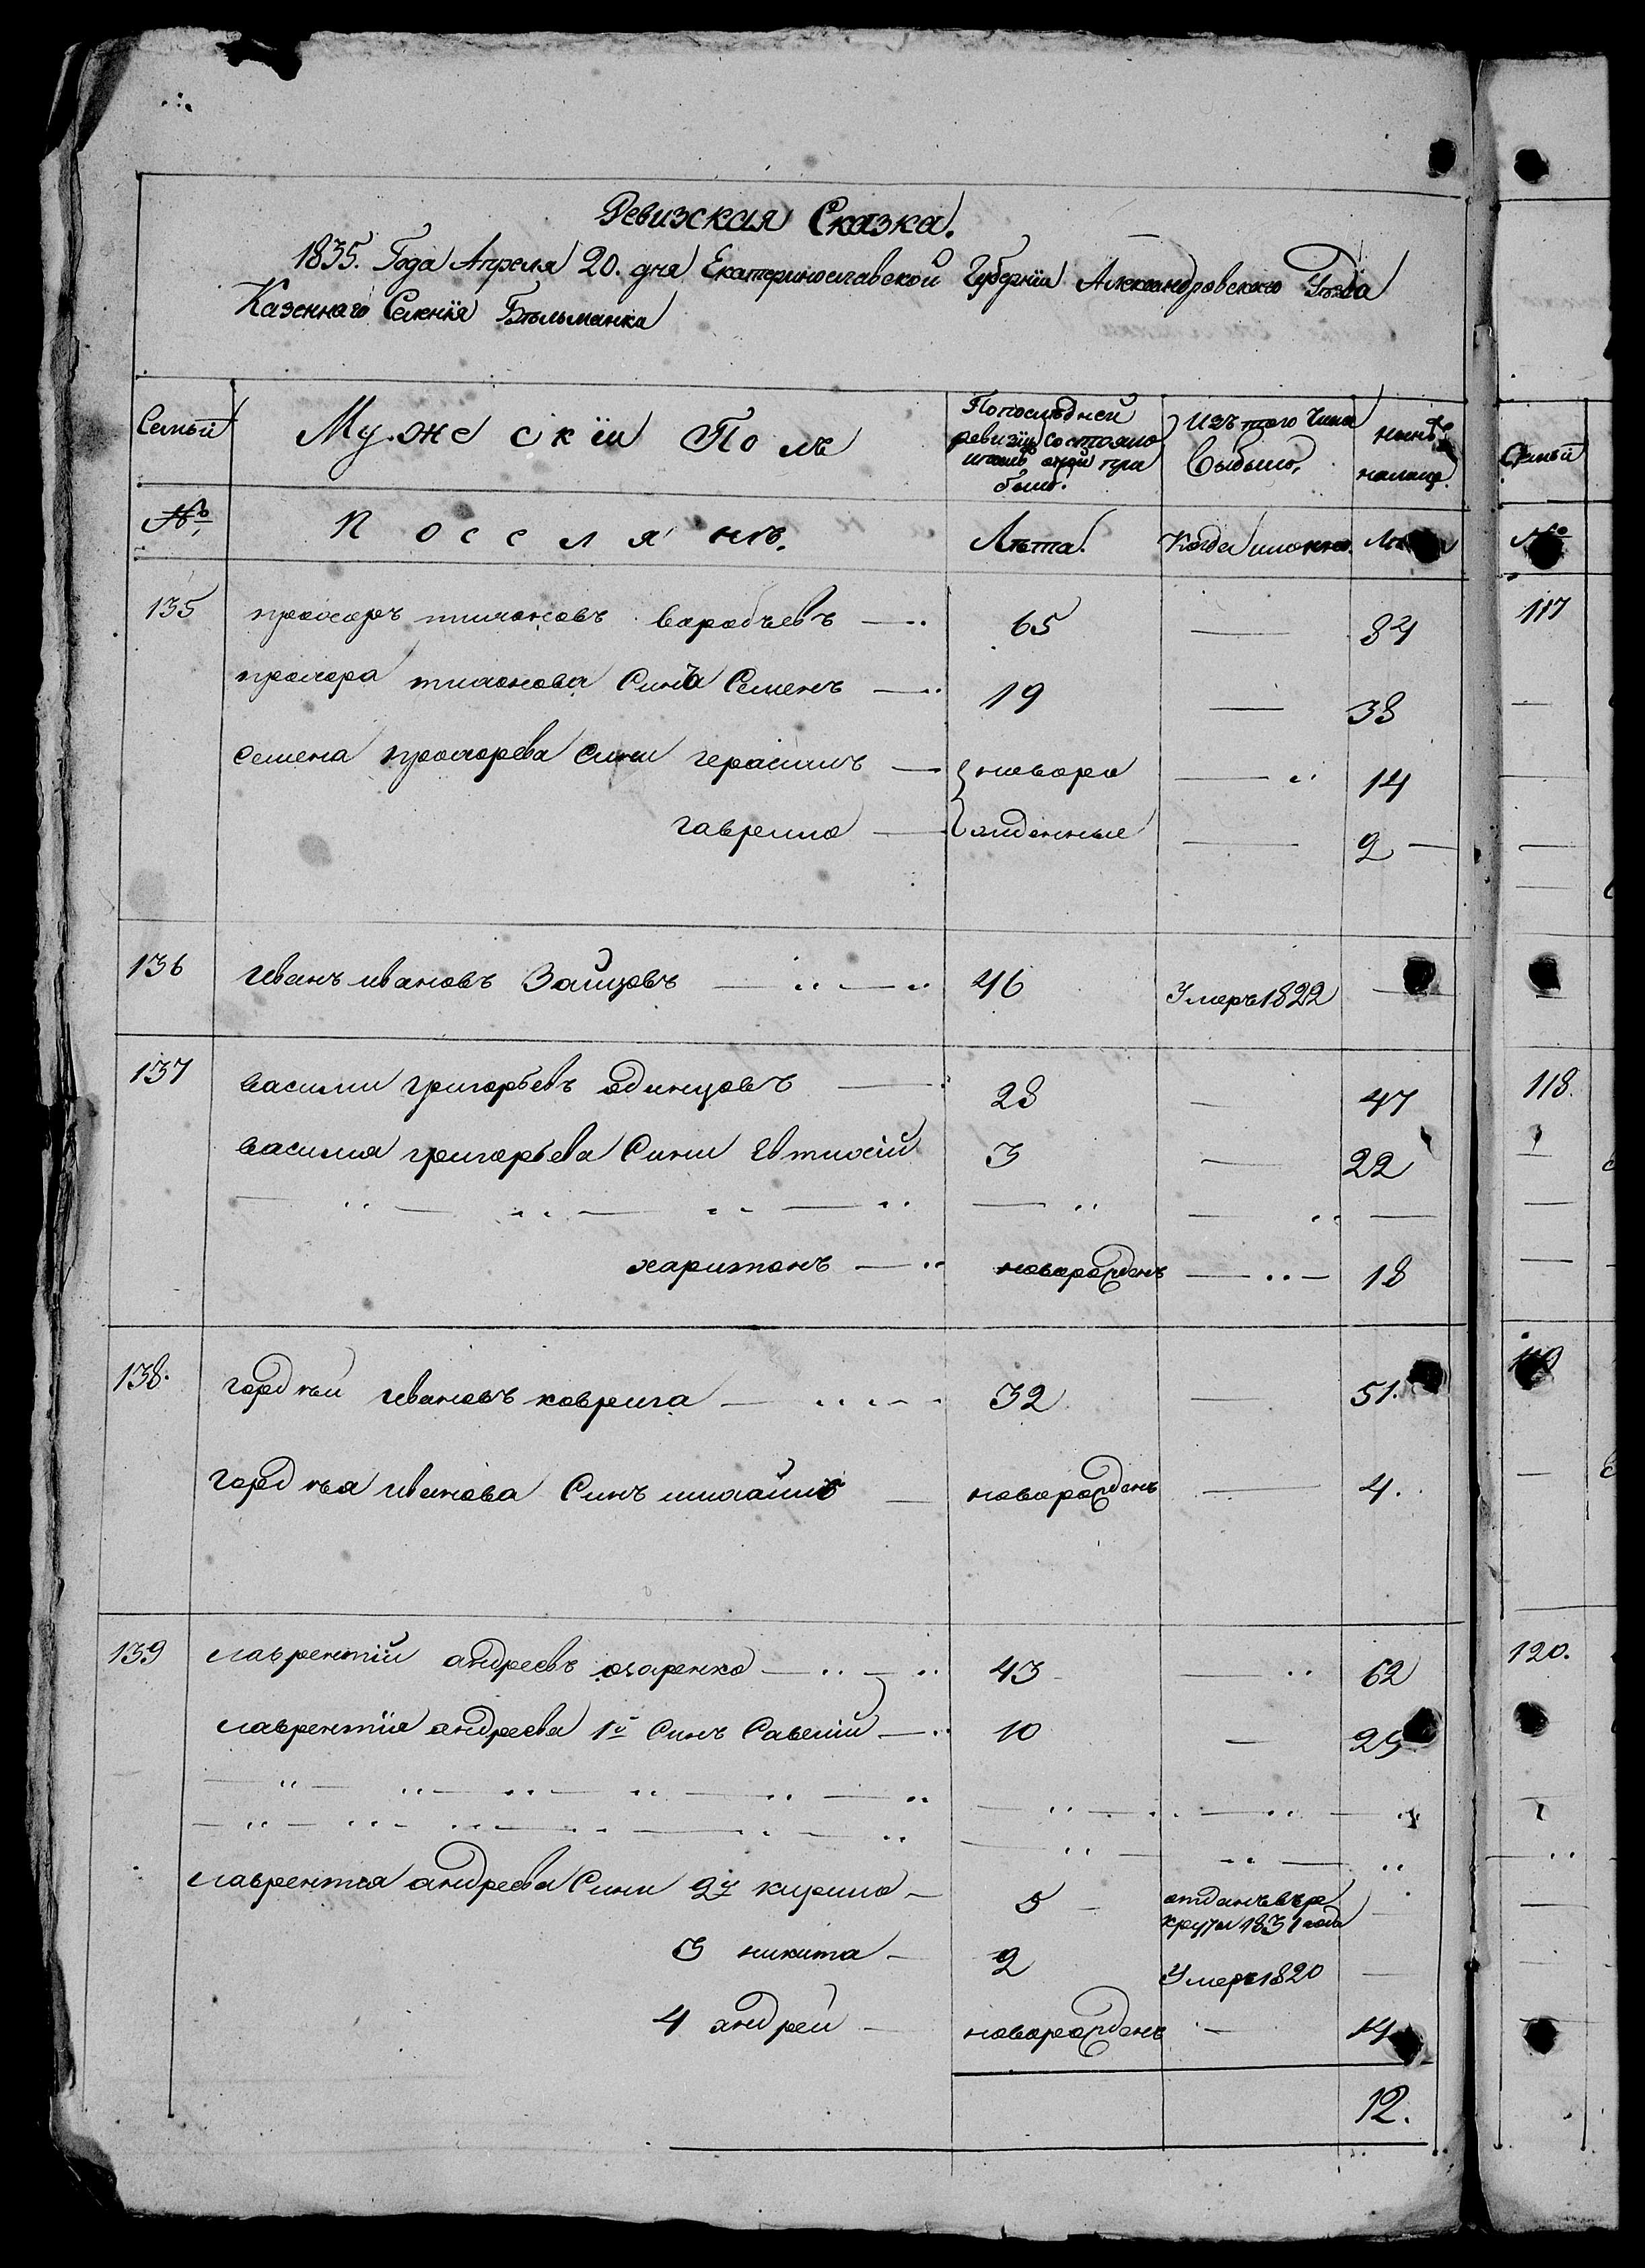 Ревизская Сказка.
1835. Года Апреля 20. дня Екатеринославской Губернїи Александровского Уезда
Казеннаго Селенїя Бѣльманка
Семьи Мужескїи Полъ По последней ревизїи состояло и после оной при было. Изъ того числа выбыло, нынѣ на лице. Семьи
№, Поселянъ. Лѣта. Когда имянно. №
135 прохоръ тихоновъ варобъевъ 65 — 84 117
прохора тихонова Синъ Семенъ 19 — 38
Семена прохорева Сини герасимъ новоро — 14
гаврило жденные — 2
136 Иванъ ивановъ Зайцовъ 46 Умеръ 1822 —
137 василии григорьевъ одинцовъ 28 — 47 118.
василия григорьева Сини Евтихїй 3 — 22
харитонъ новорожденъ — 18
138. гордѣи Ивановъ коврига 32 — 51.
гордѣя иванова Синъ михайло новорожденъ — 4.
139 лаврентїй андреевъ 43 — 62 120.
лаврентїя андреева 1й Синъ Савелїй 10 — 29
лаврентия андреева Сини 2й кирило 5 отданъ въ ре
круты 1831 года
3 никита 2 Умеръ 1820 —
4 андреи новорожденъ — 14
12.